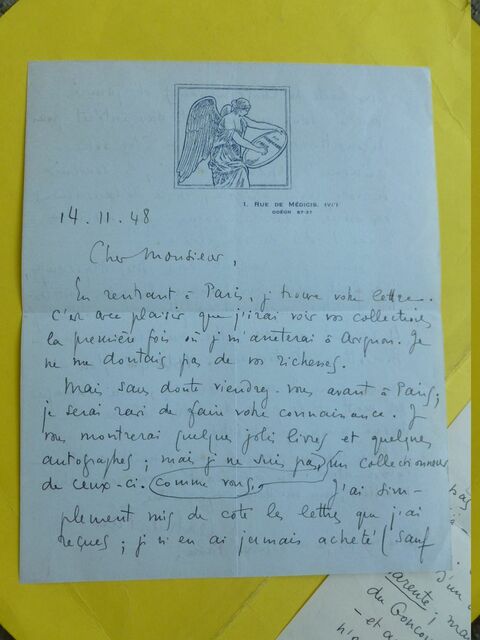 1, RUE DE MÉDICIS. (VIe)
ODÉON 87-27
14.11.48
Cher Monsieur,
En rentrant à Paris, je trouve votre lettre.
C'est avec plaisir que j'irai voir vos collections
la première fois où je m'arrêterai à Avignon. Je
ne me doutais pas de vos richesses.
Mais sans doute viendrez-vous avant à Paris;
je serai ravi de faire votre connaissance. Je
vous montrerai quelques jolis livres et quelques
autographes; mais je ne suis pas un collectionneur
de ceux-ci. comme vous. J'ai sim-
plement mis de côté les lettres que j'ai
reçues; je n'en ai jamais acheté (sauf
pas
d'un
; ma
du Gonco
- et a